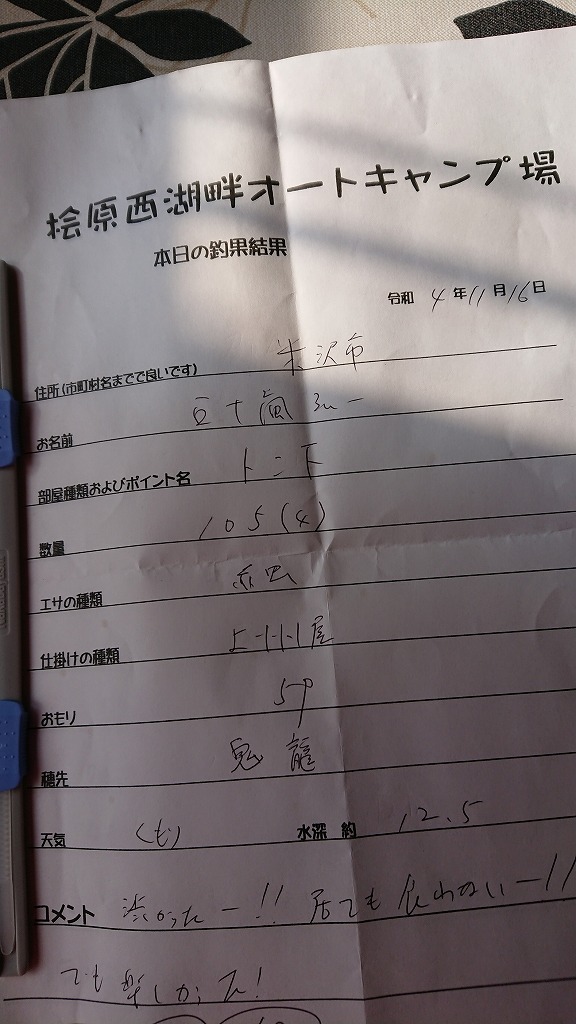 桧原西湖畔オートキャンプ場
本日の釣果結果
令和 4年11月16日
住所(市町村名までで良いです) 米沢市
お名前
部屋種類およびポイント名
数量 105(4)
エサの種類 赤虫
仕掛けの種類
おもり 5g
穂先 鬼龍
天気 くもり 水深 約 12.5
コメント 渋かったー!! 居ても食わないー!!
でも楽しかった!